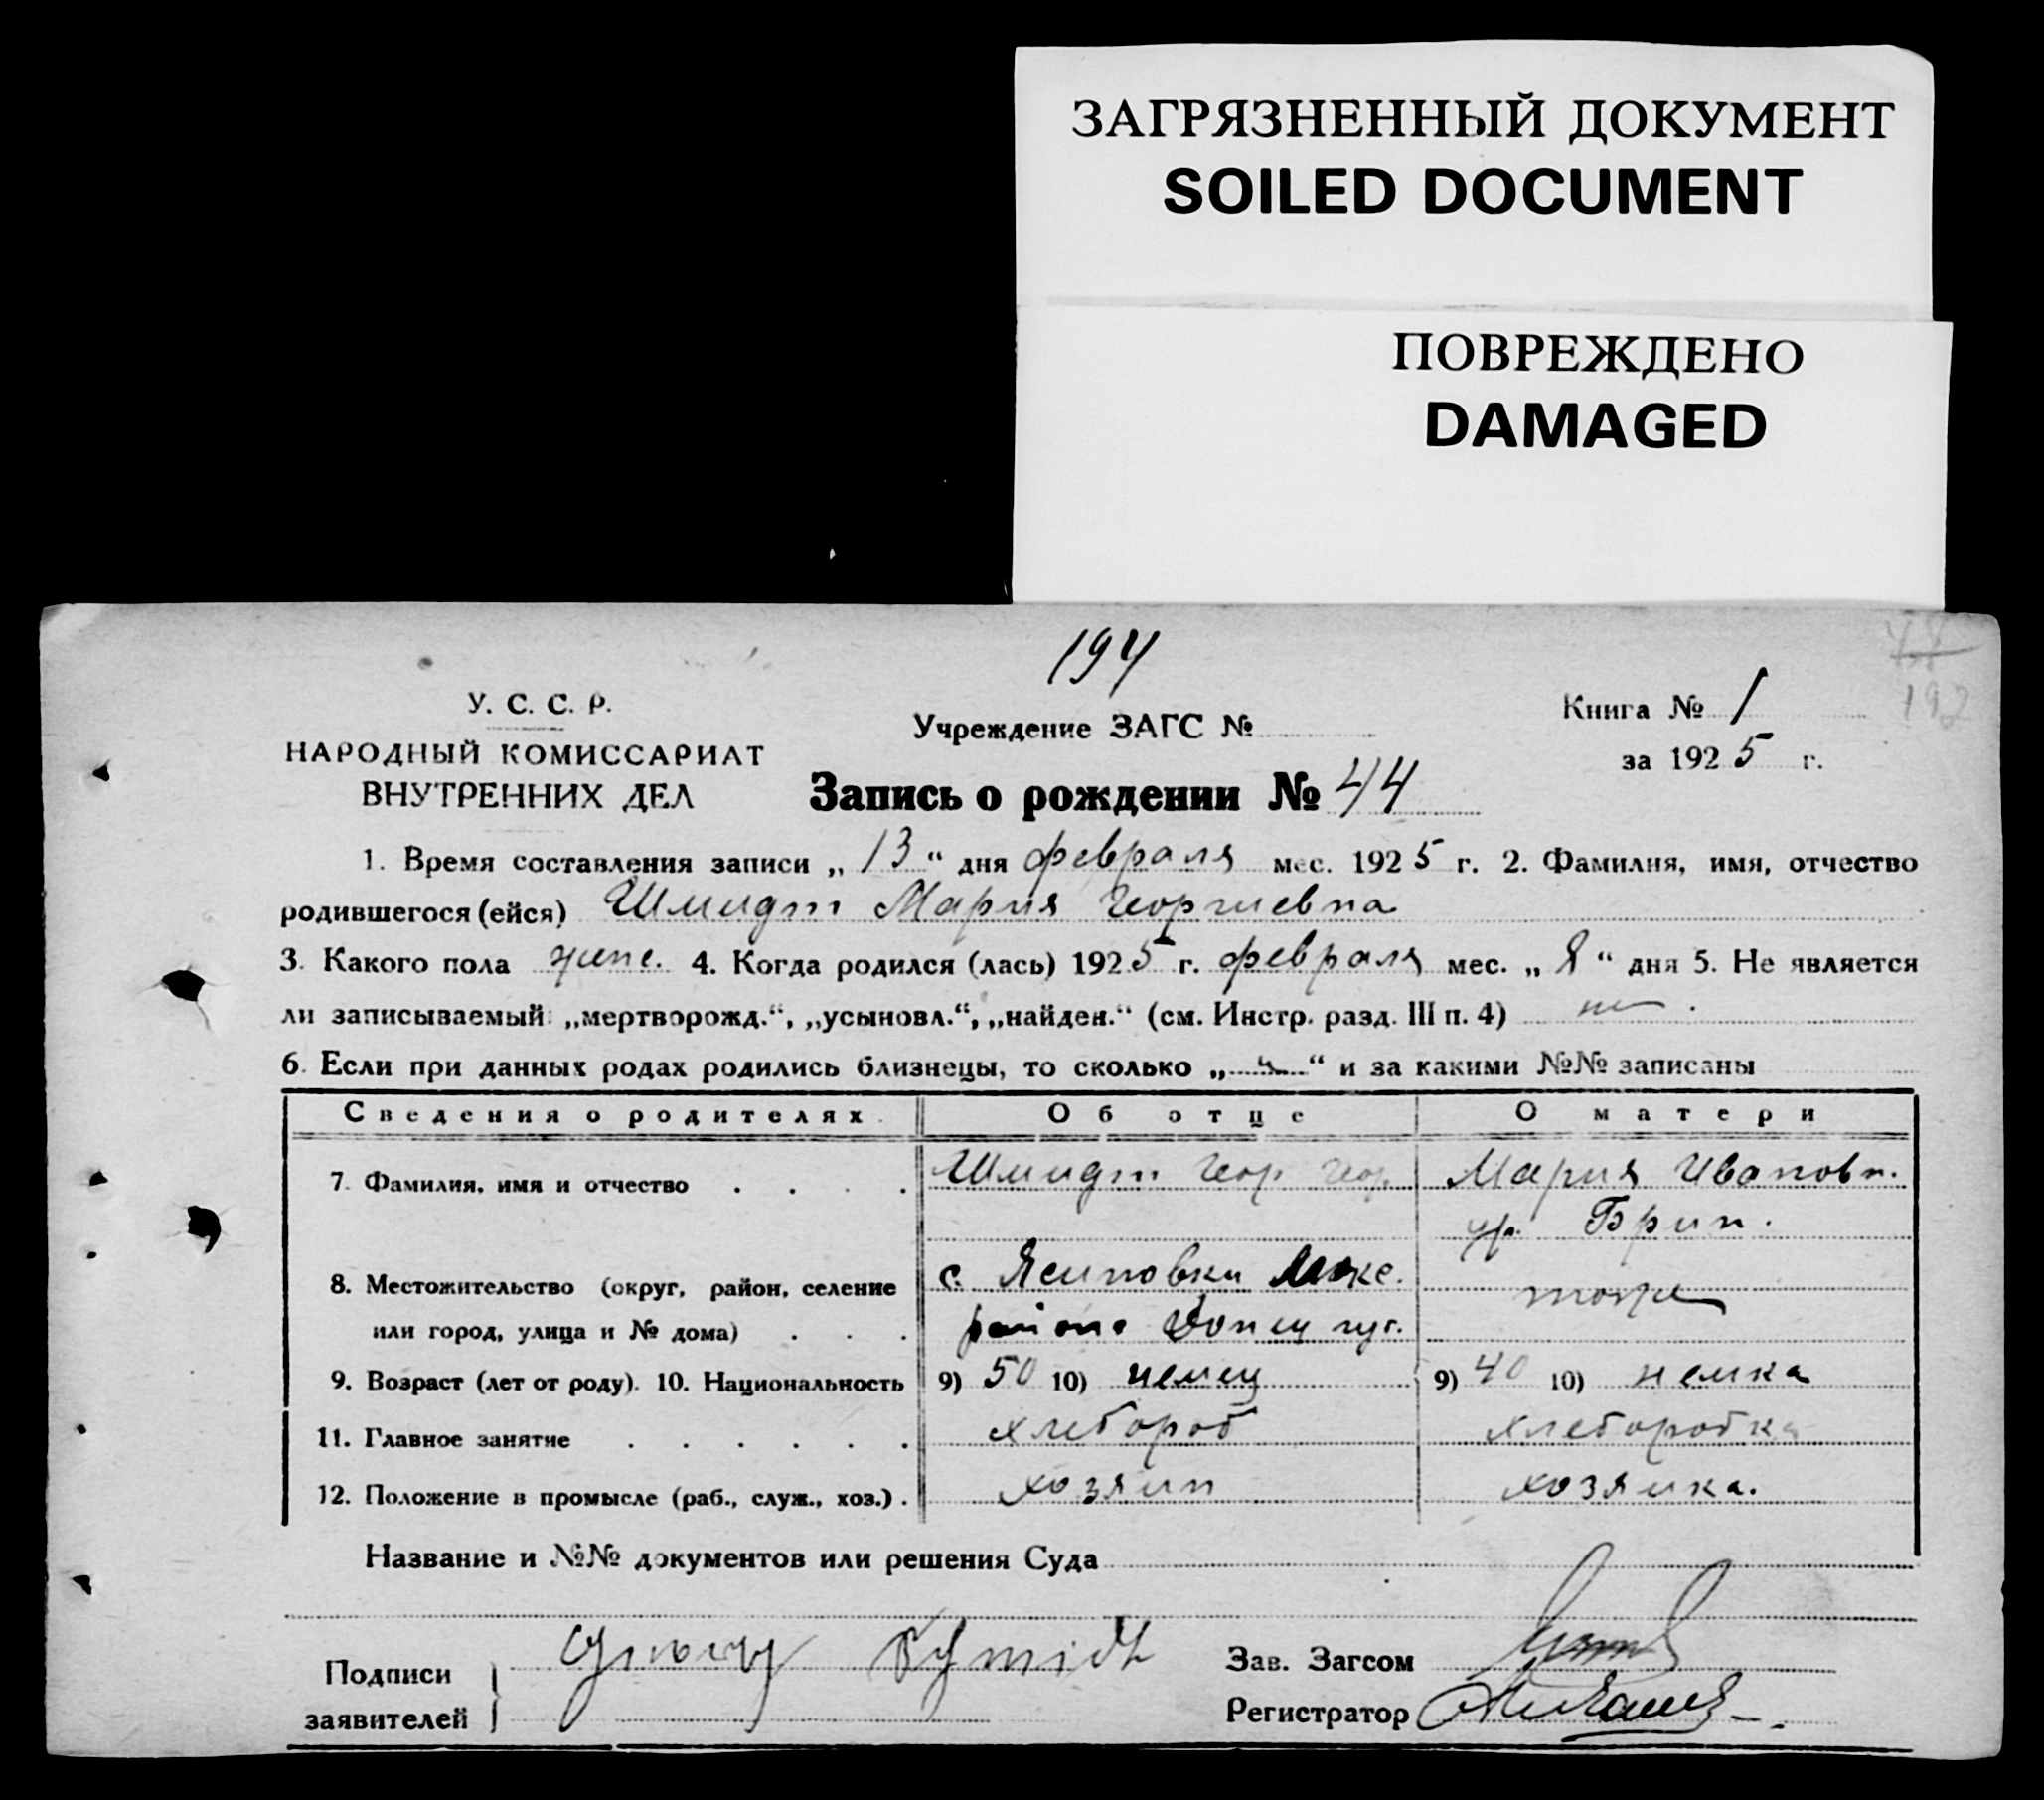 ЗАГРЯЗНЕННЫЙ ДОКУМЕНТ
SOILED DOCUMENT
ПОВРЕЖДЕНО
DAMAGED
194
192
У. С. С. Р.
НАРОДНЫЙ КОМИССАРИАТ
ВНУТРЕННИХ ДЕЛ
Учреждение ЗАГС №
Книга № 1
за 1925 г.
Запись о рождении № 44
1. Время составления записи „13“ дня февраля мес. 1925 г. 2. Фамилия, имя, отчество
родившегося (ейся) Шмидт Мария Георгиевна
3. Какого пола женс. 4. Когда родился (лась) 1925 г. февраля мес. „8“ дня 5. Не является
ли записываемый: „мертворожд.“, „усыновл.“, „найден.“ (см. Инстр. разд. III п. 4)
6. Если при данных родах родились близнецы, то сколько „ “ и за какими №№ записаны
Сведения о родителях. Об отце О матери
7. Фамилия, имя и отчество . . . . Шмидт Геор Геор Мария Ивановн.
ур. Брин.
8. Местожительство (округ, район, селение с. Ясиновки
или город, улица и № дома) . . . района Донец губ. тоже
9. Возраст (лет от роду). 10. Национальность 9) 50 10) немец 9) 40 10) немка
11. Главное занятие . . . . . . хлебороб хлеборобка
12. Положение в промысле (раб., служ., хоз.) . хозяин хозяйка.
Название и №№ документов или решения Суда
Подписи
заявителей
Schmidt
Зав. Загсом
Регистратор